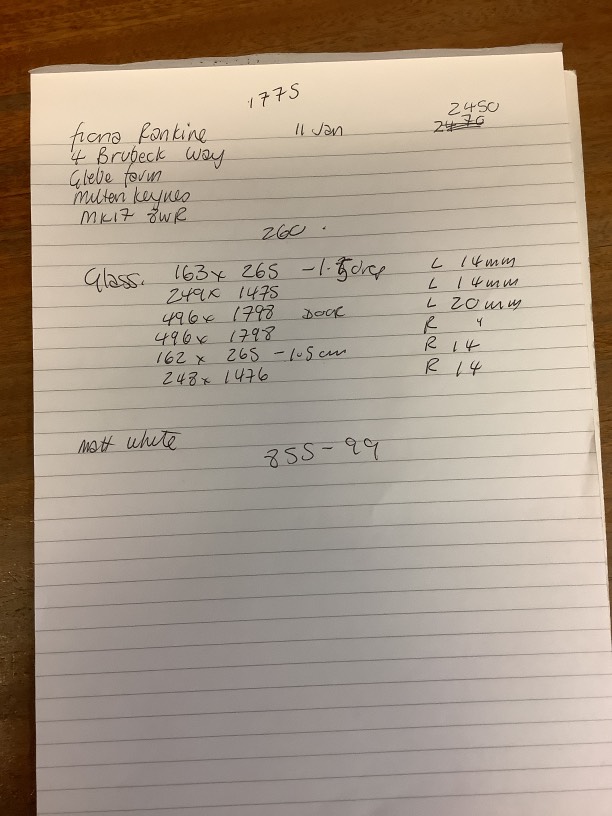 1775
2450
Fiona Rankine 11 Jan 2470
4 Brubeck Way
Glebe farm
Milton Keynes
MK17 8WR
260.
Glass. 163 x 265 - 1.5 drop L 14mm
249 x 1475 L 14mm
496 x 1798 Door L 20mm
496 x 1798 R "
162 x 265 - 1.5cm R 14
248 x 1476 R 14
matt white
855-99